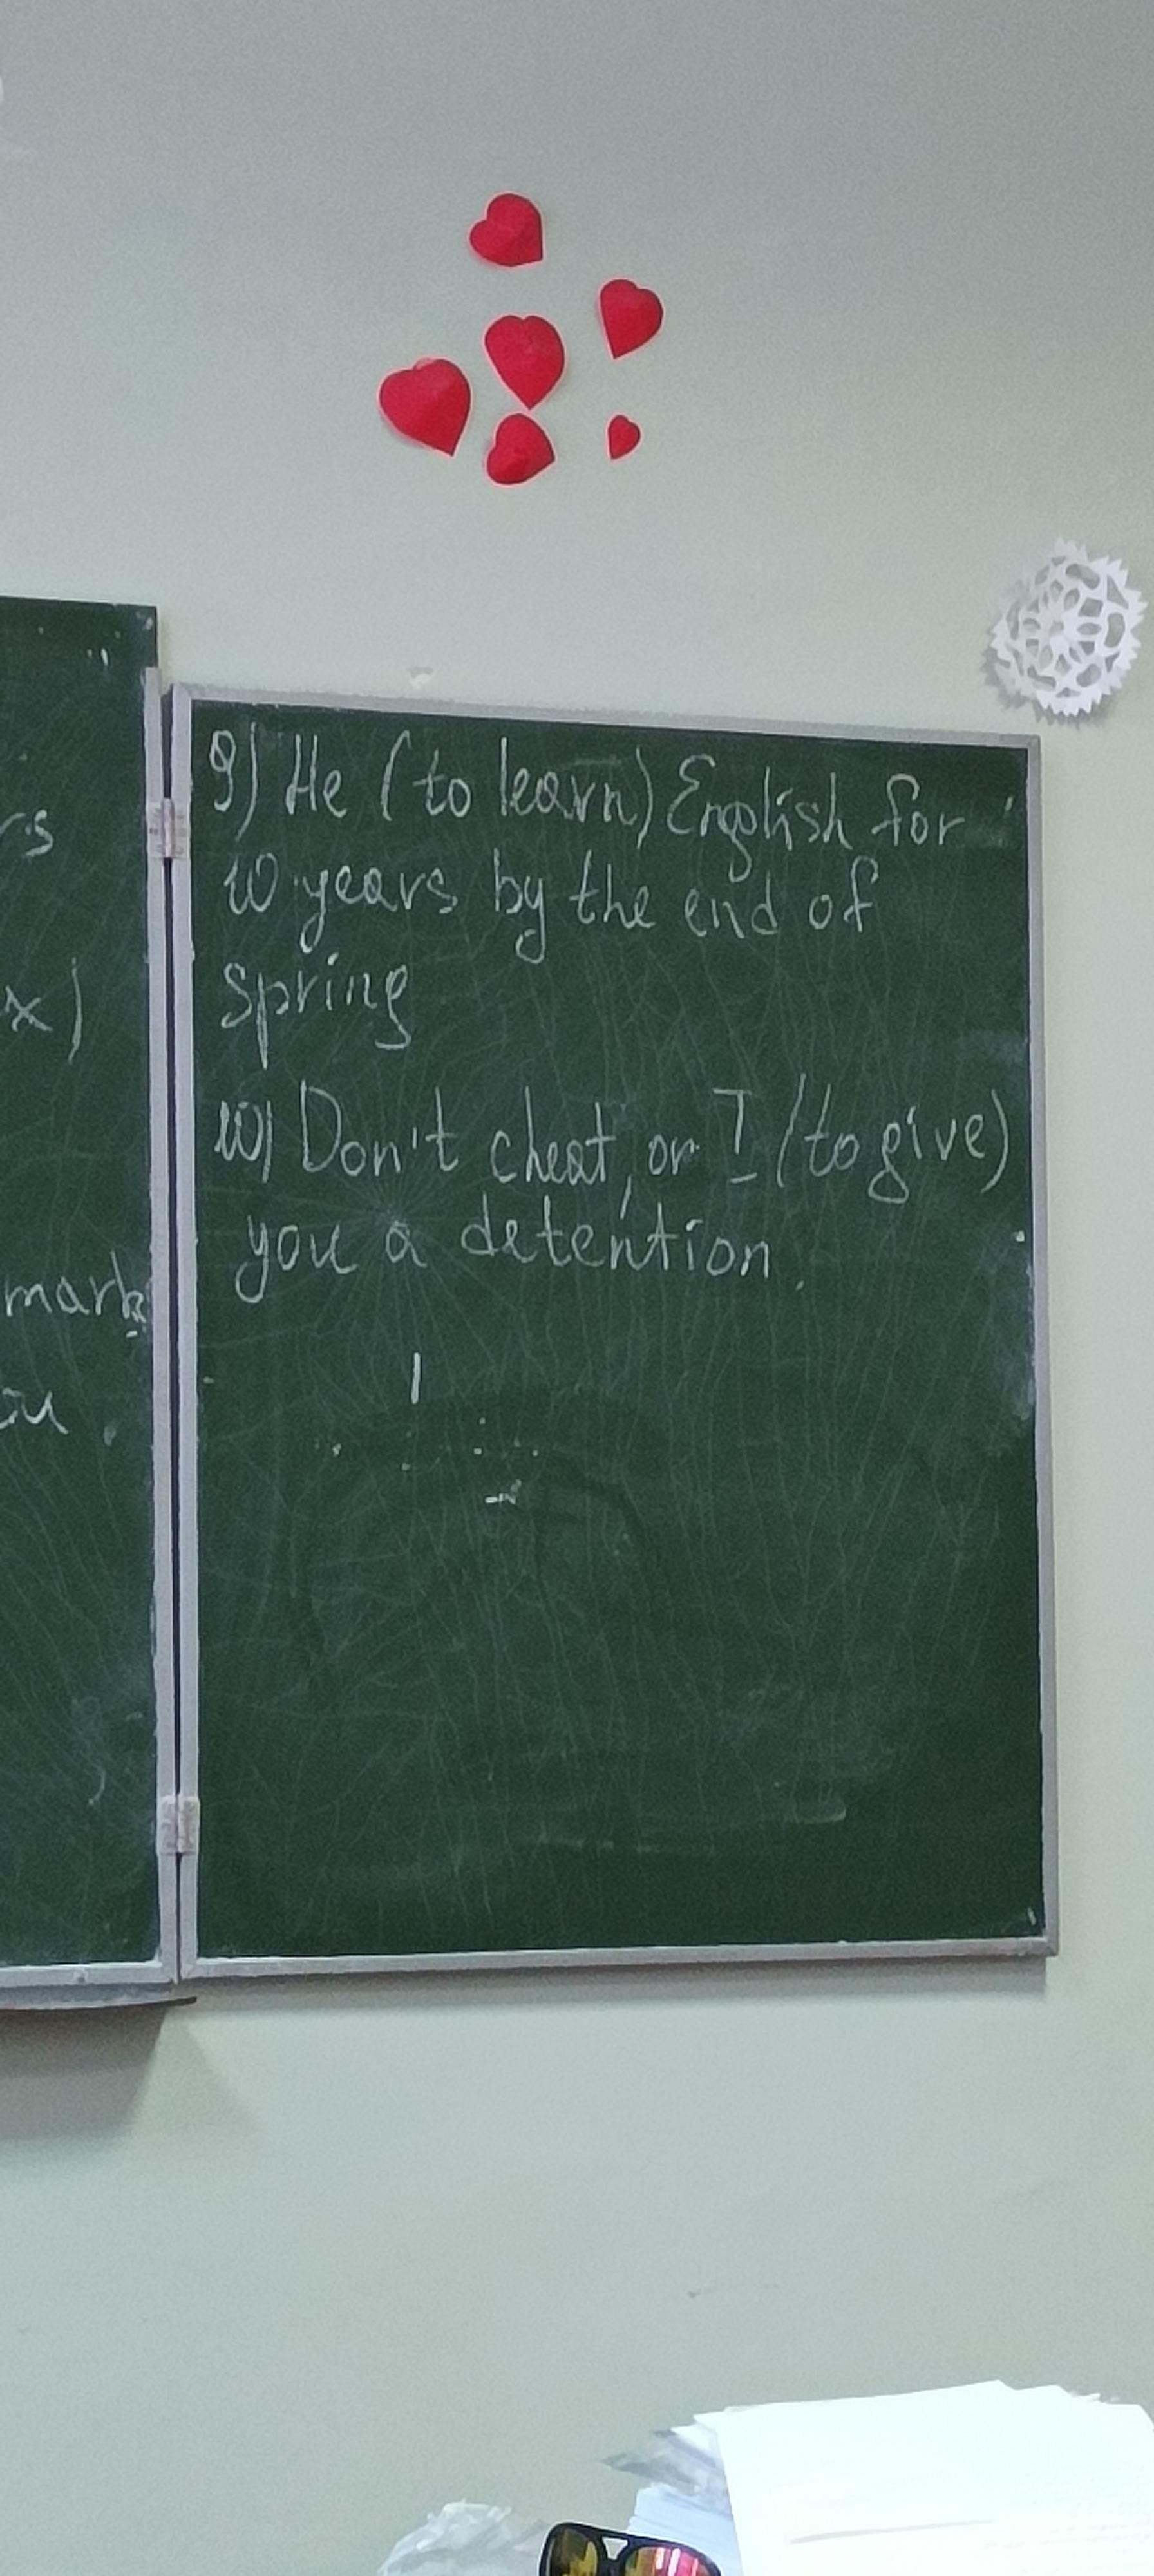 rs
x)
mark
ou.
9) He (to learn) English for
10 years by the end of
spring
10) Don't cheat, or I (to give)
you a detention.